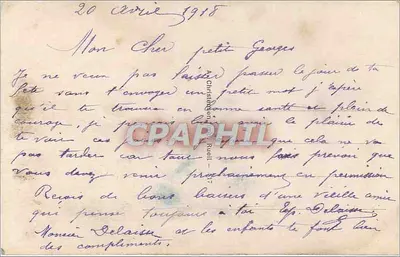 20 Avril 1918
Mon Cher petit Georges
Je ne veux pas laisser passer le jour de ta
fete sans t'envoyer un petit mot j'espère
qu'il te trouvera en bonne santé et plein de
courage, je bien le plaisir de
te voir ces que cela ne va
pas tarder car nous prevoir que
vous devez venir prochainement en permission
Recois de bons baisers d'une vieille amie
qui pense toujours a toi Delaisse
Monsieur Delaisse et les enfants te font bien
des compliments.
CPAPHIL